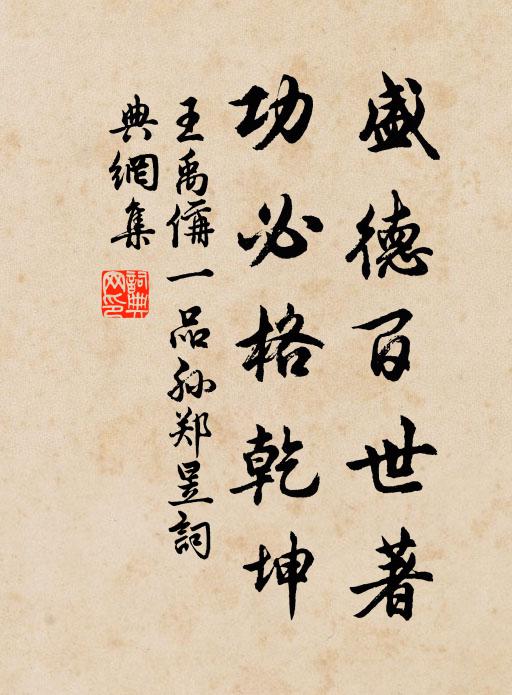 盛德百世著
功必格乾坤
王禹偁一品孙郑昱詞
典網集
詞典網印